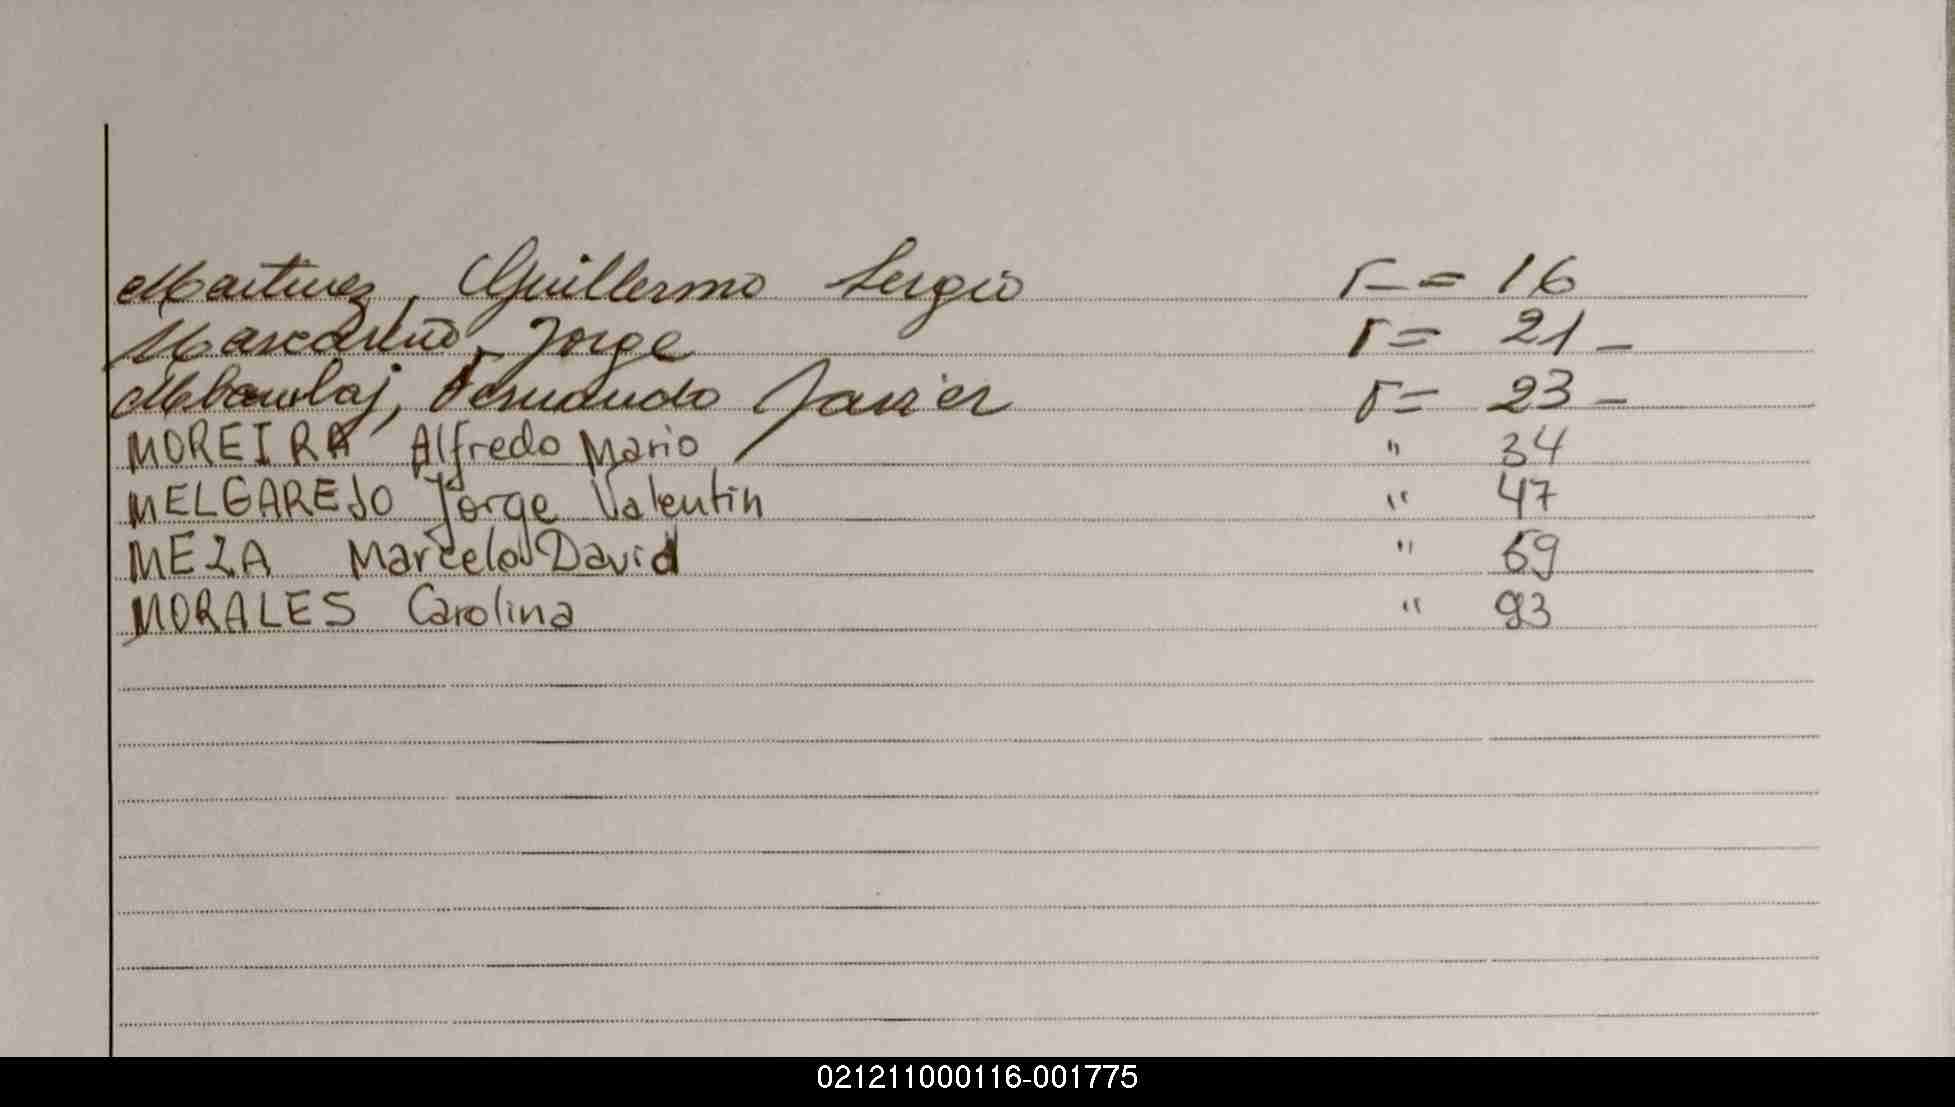 Martinez, Guillermo Sergio r= 16
Jorge r= 21_
Fernando Javier r= 23_
MOREIRA Alfredo Mario " 34
MELGAREJO Jorge Valentin " 47
MEZA Marcelo David " 69
MORALES Carolina " 93
021211000116-001775